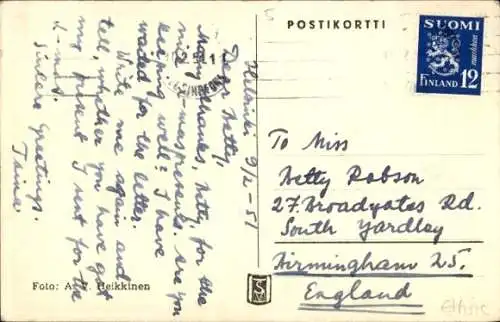 5
POSTIKORTTI
SUOMI
FINLAND 12
markkaa
Helsinki 9/2-51
Dear Betty,
Many thanks, Betty, for the
nice x-maspresents. Are you
keeping well? I have
waded for the letter.
Write me again and
tell, whether you have got
my present I sent for the
x-mas.
Sincere Greetings.
Taina
To Miss
Betty Robson
27. Broadyates Rd.
South Yardley
Birmingham 25.
England
Foto: A. Heikkinen